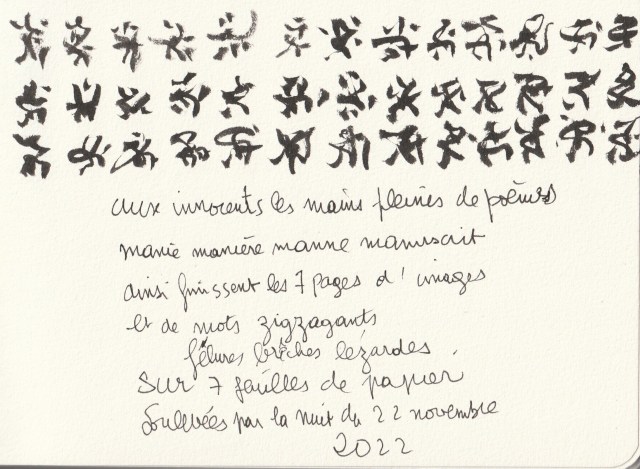 aux innocents les mains pleines de poèmes
manie manière manne manuscrit
ainsi finissent les 7 pages d'images
et de mots zigzagants
fêlures brèches lézardes.
Sur 7 feuilles de papier
Soulevées par la nuit du 22 novembre
2022